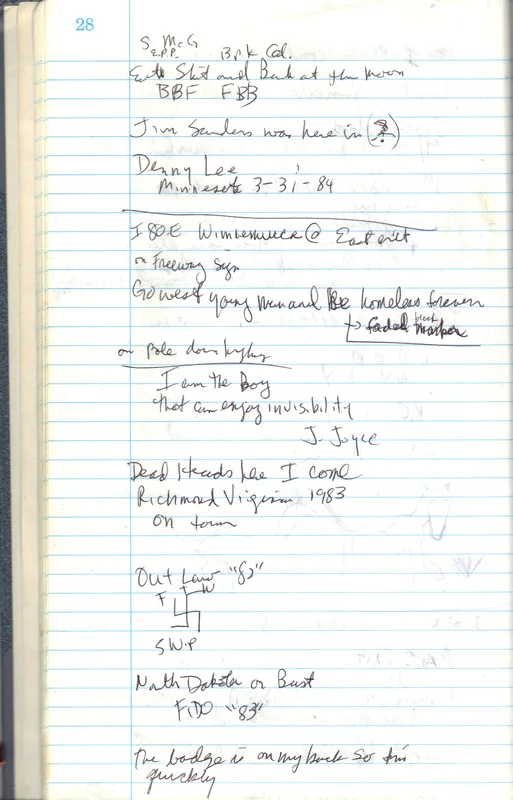 28
S. McG
E.P.P. Brk Cal.
Eat Shit and Bark at the Moon
BBF FBB
Jim Sanders was here in (?)
Denny Lee
Minnesota 3-31-84
I 80 E Winnemucca @ East exit
on Freeway sign
Go west young man and Be homeless forever
→ faded black marker
on pole down hyhy
I am the Boy
that can enjoy invisibility
J. Joyce
Dead Heads here I come
Richmond Virginia 1983
on tour
Out Law "82"
F W
S W.P
North Dakota or Bust
FIDO "83"
The badge is on my back so
quickly